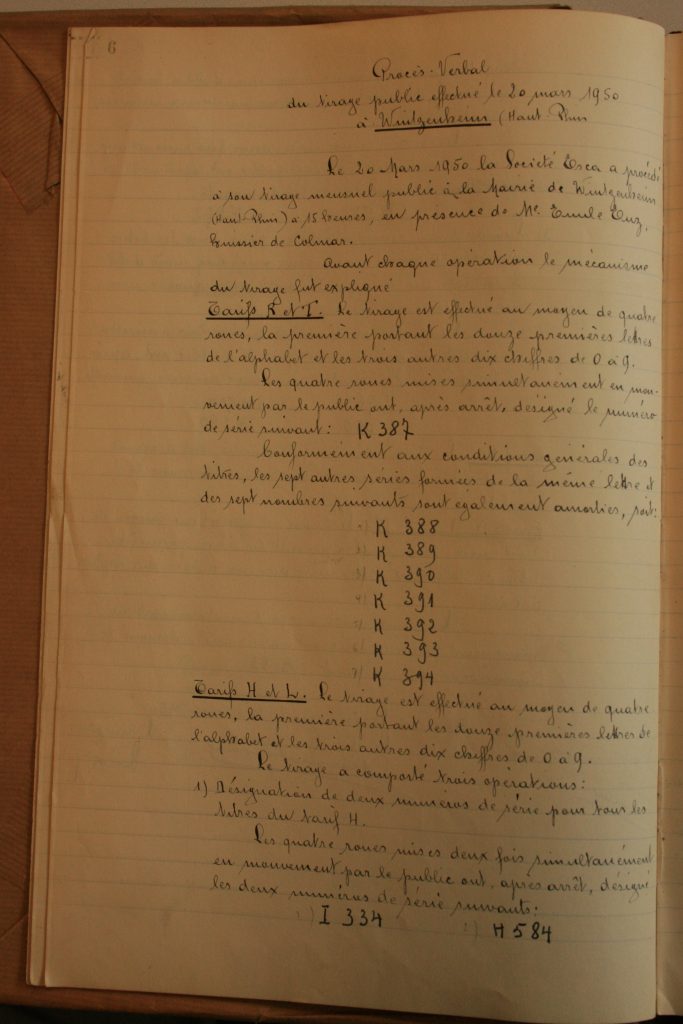 6
Procès-Verbal
du tirage public effectué le 20 mars 1950
à Wintzenheim (Haut-Rhin
Le 20 Mars 1950 la Societé Esca a procédé
à son tirage mensuel public à la Mairie de Wintzenheim
(Haut-Rhin) à 15 heures, en présence de Me. Emile Enz,
huissier de Colmar.
Avant chaque opération le mécanisme
du tirage fut expliqué
Tarifs R et T. Le tirage est effectué au moyen de quatre
roues, la première portant les douze premières lettres
de l'alphabet et les trois autres dix chiffres de 0 à 9.
Les quatre roues mises simultanément en mou-
vement par le public ont, après arrêt, désigné le numéro
de série suivant: K 387
Conformément aux conditions générales des
titres, les sept autres séries formées de la même lettre et
des sept nombres suivants sont également amorties, soit:
1) K 388
2) K 389
3) K 390
4) K 391
5) K 392
6) K 393
7) K 394
Tarifs H et L. Le tirage est effectué au moyen de quatre
roues, la première portant les douze premières lettres de
l'alphabet et les trois autres dix chiffres de 0 à 9.
Le tirage a comporté trois opérations:
1) Désignation de deux numéros de série pour tous les
titres du tarif H.
Les quatre roues mises deux fois simultanément
en mouvement par le public ont, après arrêt, désigné
les deux numéros de série suivants:
1) I 334 2) H 584